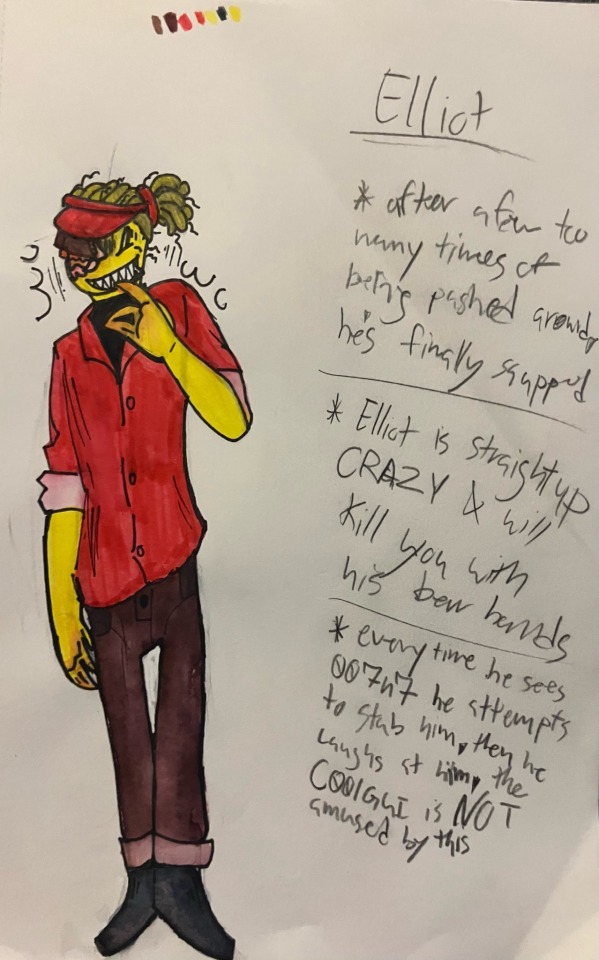 Elliot
* after a few too
many times of
being pushed around,
he's finally snapped
* Elliot is straight up
CRAZY & will
kill you with
his bear hands
* every time he sees
007n7 he attempts
to stab him, then he
laughs at him, the
COOlGUI is NOT
amused by this